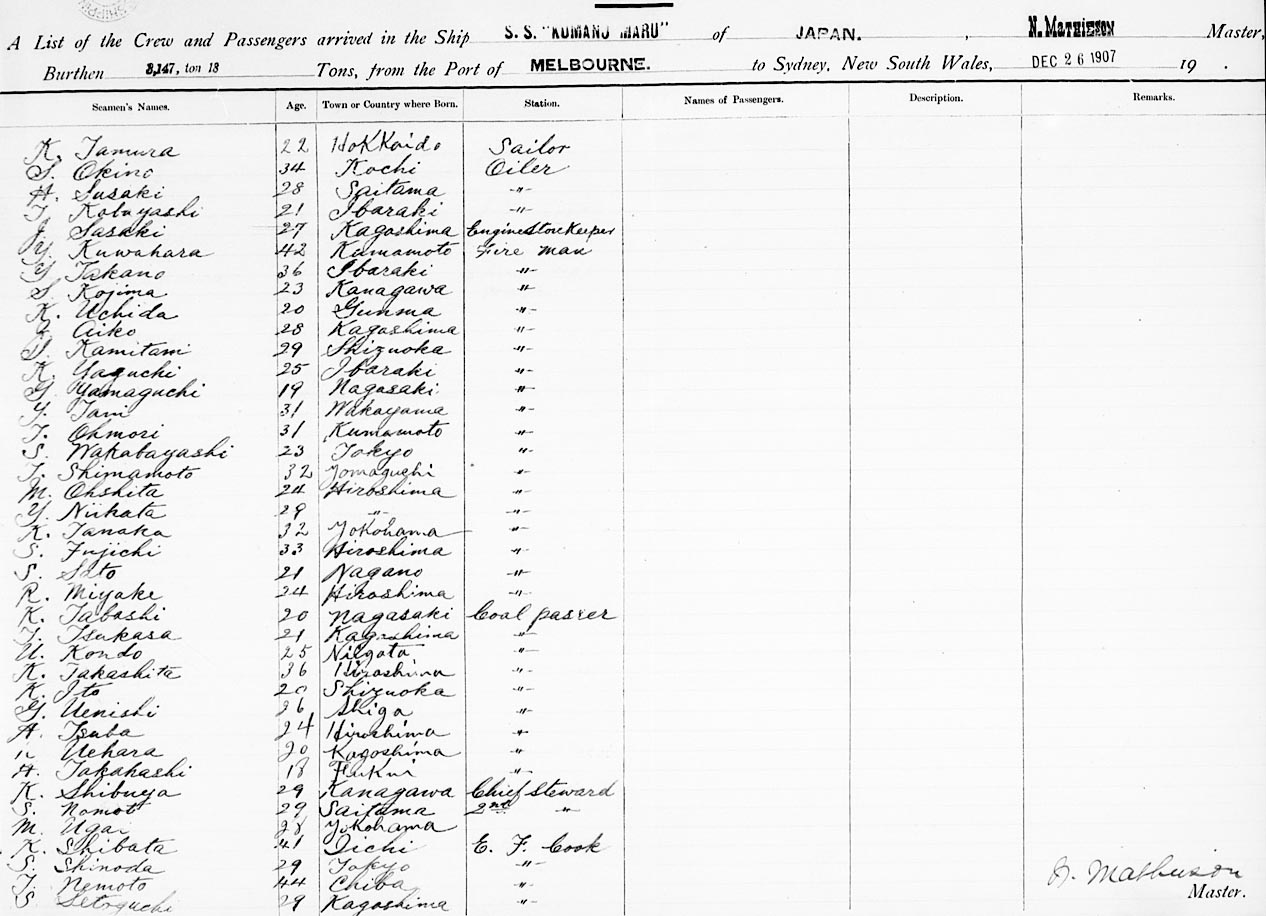 A List of the Crew and Passengers arrived in the Ship S. S. "KUMANO MARU" of JAPAN. , N. MATHIESON Master,
Burthen 3,147, ton 13 Tons, from the Port of MELBOURNE. to Sydney, New South Wales, DEC 26 1907 19 .
Seamen's Names. Age. Town or Country where Born. Station. Names of Passengers. Description. Remarks.
K. Tamura 22 Hokkaido Sailor
S. Okino 34 Kochi Oiler
H. Susaki 28 Saitama -"-
T. Kobayashi 21 Ibaraki -"-
J. Sasaki 27 Kagoshima Engine Store Keeper
Y. Kuwahara 42 Kumamoto Fire man
Y. Takano 36 Ibaraki -"-
S. Kojima 23 Kanagawa -"-
K. Uchida 20 Gunma -"-
Aiko 28 Kagoshima -"-
Kamitani 29 Shizuoka -"-
K. Yaguchi 25 Ibaraki -"-
G. Yamaguchi 19 Nagasaki -"-
Y. Tani 31 Wakayama -"-
T. Ohmori 31 Kumamoto -"-
S. Wakabayashi 23 Tokyo -"-
T. Shimamoto 32 Yomaguchi -"-
M. Ohshita 24 Hiroshima -"-
Y. Niikata 29 -"- -"-
K. Tanaka 32 Yokohama -"-
S. Fujichi 33 Hiroshima -"-
S. Sato 21 Nagano -"-
R. Miyake 24 Hiroshima -"-
K. Tabashi 20 Nagasaki Coal passer
T. Tsukasa 21 Kagoshima -"-
U. Kondo 25 Niigata -"-
K. Takashita 36 Hiroshima -"-
K. Ito 20 Shizuoka -"-
G. Uenishi 26 Shiga -"-
A. Tsuba 24 Hiroshima -"-
Uehara 20 Kagoshima -"-
H. Takahashi 18 Fukui -"-
K. Shibuya 29 Kanagawa Chief Steward
S. Nomot 29 Saitama 2nd -"-
M. Ugai 28 Yokohama
K. Shibata 41 Iichi E. F. Cook
S. Shinoda 29 Tokyo -"-
T. Nemoto 44 Chiba -"-
S. Setoguchi 29 Kagoshima -"-
N. Mathieson
Master.